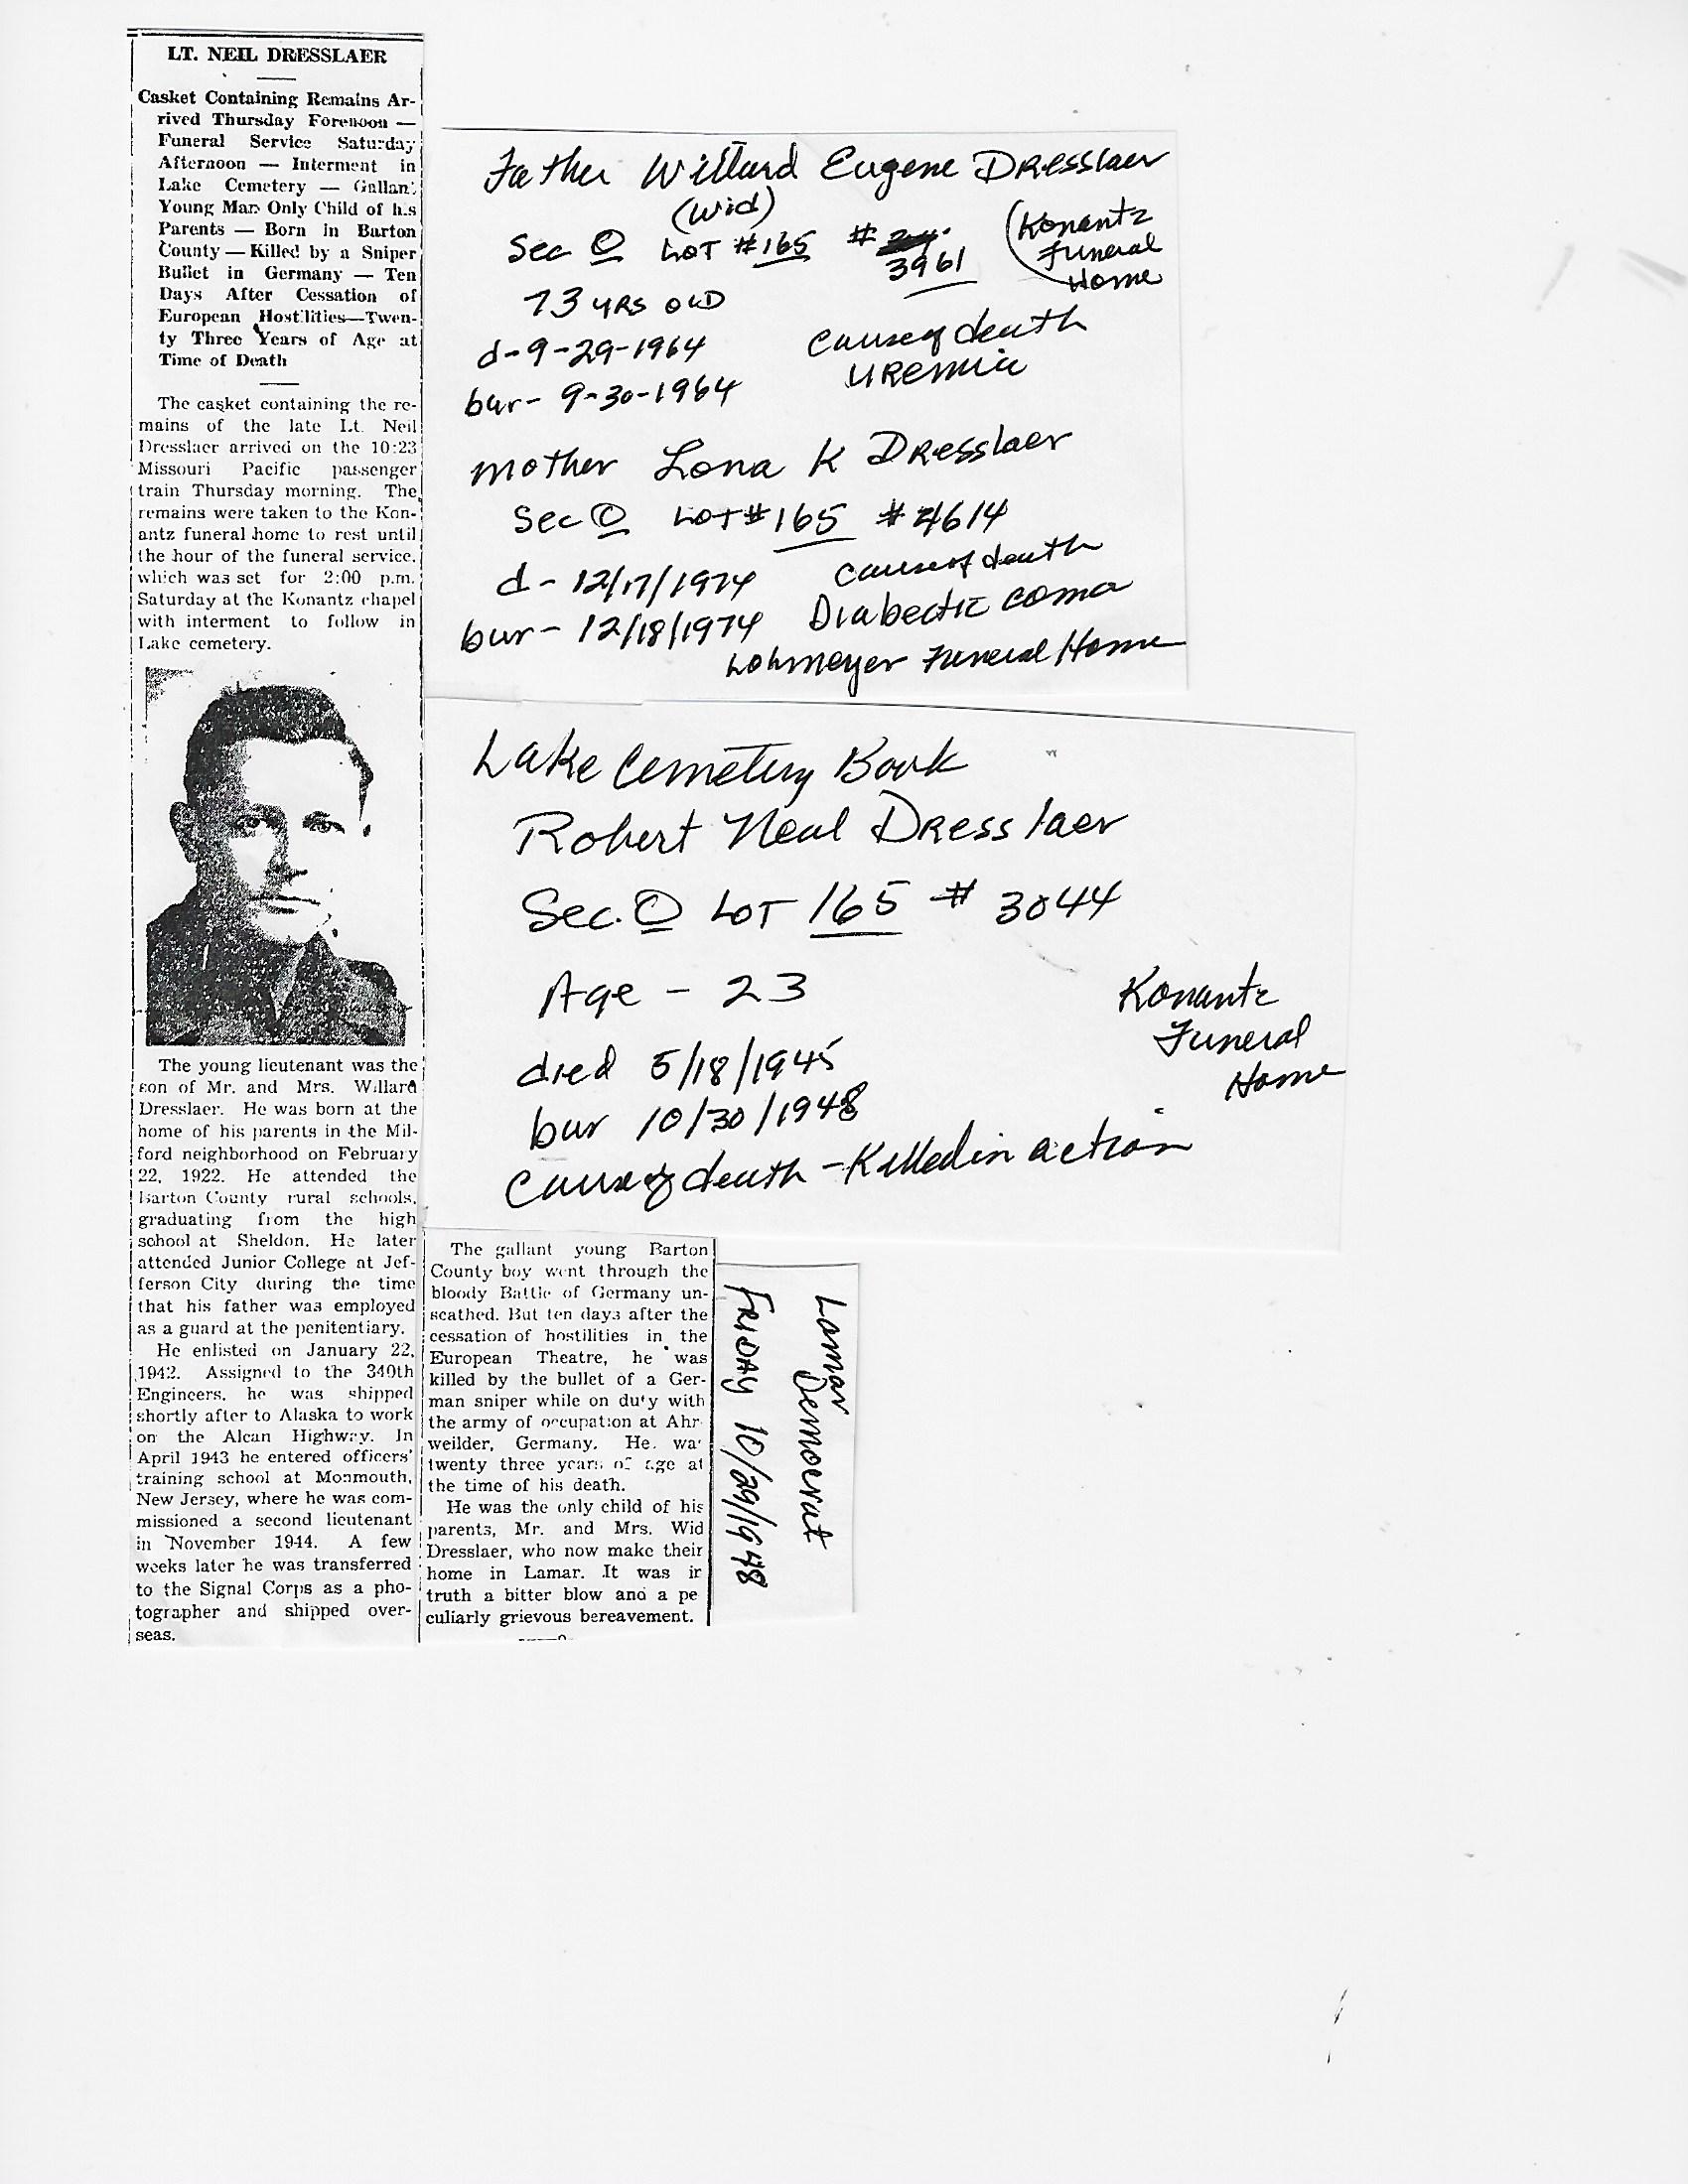 LT. NEIL DRESSLAER
Casket Containing Remains Ar-
rived Thursday Forenoon —
Funeral Service Saturday
Afternoon — Interment in
Lake Cemetery — Gallant
Young Man Only Child of his
Parents — Born in Barton
County — Killed by a Sniper
Bullet in Germany — Ten
Days After Cessation of
European Hostilities—Twen-
ty Three Years of Age at
Time of Death
The casket containing the re-
mains of the late Lt. Neil
Dresslaer arrived on the 10:23
Missouri Pacific passenger
train Thursday morning. The
remains were taken to the Kon-
antz funeral home to rest until
the hour of the funeral service,
which was set for 2:00 p.m.
Saturday at the Konantz chapel
with interment to follow in
Lake cemetery.
The young lieutenant was the
son of Mr. and Mrs. Willard
Dresslaer. He was born at the
home of his parents in the Mil-
ford neighborhood on February
22, 1922. He attended the
Barton County rural schools,
graduating from the high
school at Sheldon. He later
attended Junior College at Jef-
ferson City during the time
that his father was employed
as a guard at the penitentiary.
He enlisted on January 22,
1942. Assigned to the 340th
Engineers, he was shipped
shortly after to Alaska to work
on the Alcan Highway. In
April 1943 he entered officers'
training school at Monmouth,
New Jersey, where he was com-
missioned a second lieutenant
in November 1944. A few
weeks later he was transferred
to the Signal Corps as a pho-
tographer and shipped over-
seas.
The gallant young Barton
County boy went through the
bloody Battle of Germany un-
scathed. But ten days after the
cessation of hostilities in the
European Theatre, he was
killed by the bullet of a Ger-
man sniper while on duty with
the army of occupation at Ahr-
weilder, Germany. He wa
twenty three years of age at
the time of his death.
He was the only child of his
parents, Mr. and Mrs. Wid
Dresslaer, who now make their
home in Lamar. It was in
truth a bitter blow and a pe
culiarly grievous bereavement.
Father Willard Eugene Dresslaer
(Wid)
Sec O Lot #165 # 3961
(Konantz
Funeral
Home
73 yrs old
d-9-29-1964
cause of death
uremia
bur- 9-30-1964
mother Lona K Dresslaer
Sec O Lot #165 #4614
d- 12/17/1974
cause of death
bur- 12/18/1974
Diabectic coma
Lohmeyer Funeral Home
Lake Cemetery Book
Robert Neal Dresslaer
Sec. O Lot 165 # 3044
Age - 23
Konantz
Funeral
Home
died 5/18/1945
bur 10/30/1948
cause of death - Killed in action
Lamar Democrat
Friday 10/29/1948